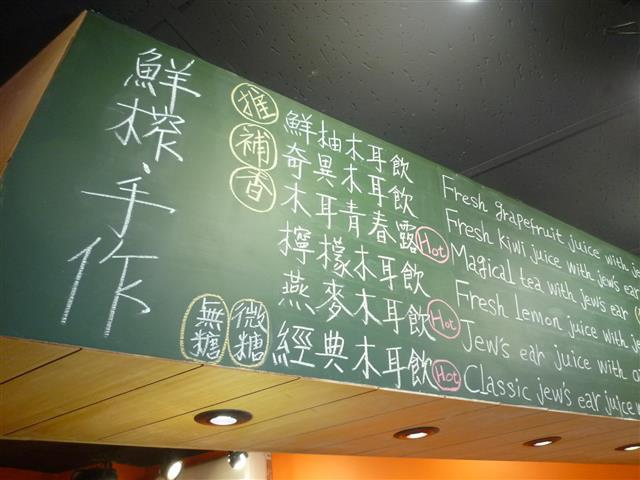 鮮榨、手作
推 鮮柚木耳飲 Fresh grapefruit juice with
補 奇異木耳飲 Fresh kiwi juice with jew's ear
香 木耳青春露 Hot Magical tea with jew's ear
檸檬木耳飲 Fresh lemon juice with
燕麥木耳飲 Hot Jew's ear juice with
無糖 微糖 經典木耳飲 Hot Classic jew's ear juice